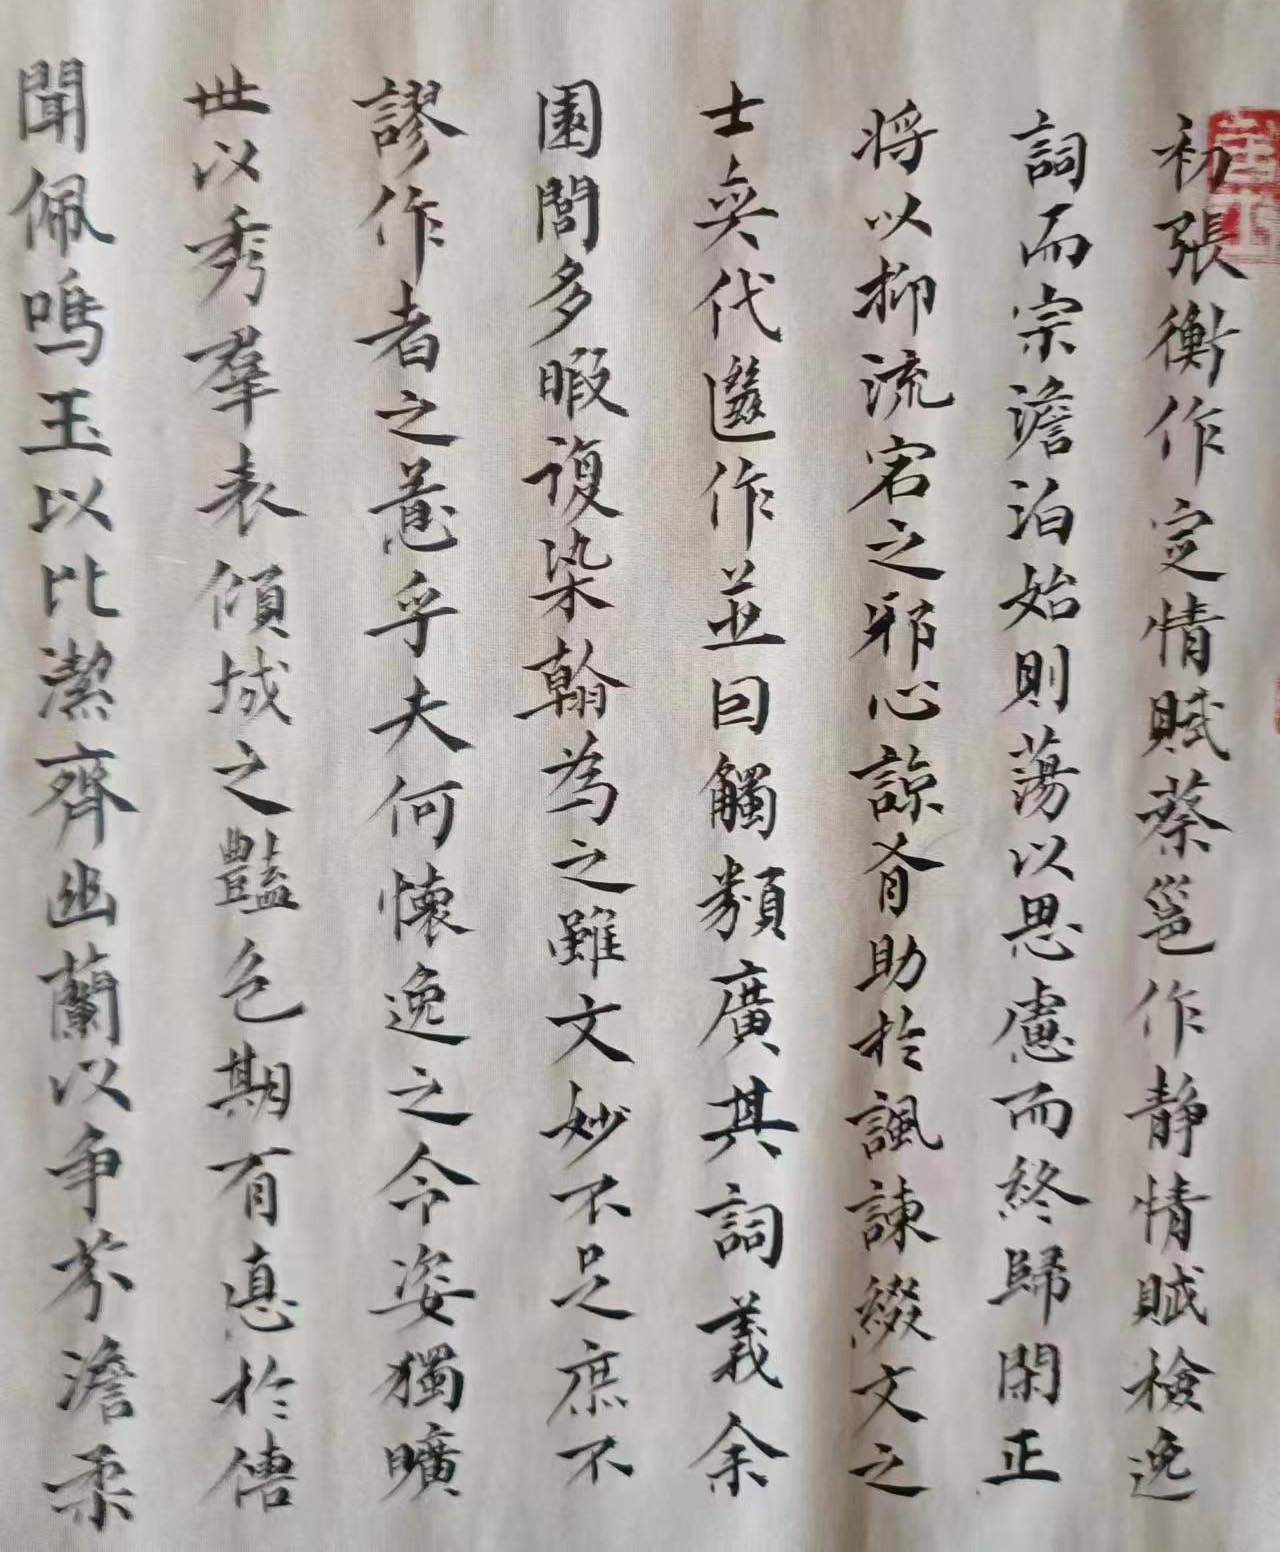 初張衡作定情賦蔡邕作静情賦檢逸
詞而宗澹泊始則蕩以思慮而終歸閑正
将以抑流宕之邪心諒有助於諷諫綴文之
士奕代繼作並因觸類廣其詞義余
園閭多暇復染翰為之雖文妙不足庶不
謬作者之意乎夫何懷逸之令姿獨曠
世以秀羣表傾城之豔色期有惪於傳
聞佩鳴玉以比潔齊幽蘭以争芬澹柔